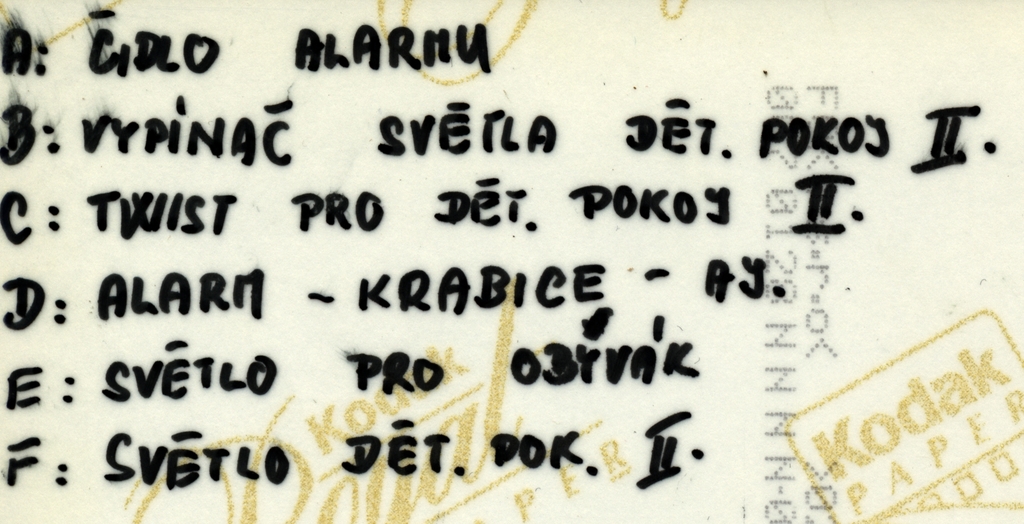 A: ČIDLO ALARMU
B: VYPÍNAČ SVĚTLA DĚT. POKOJ II.
C: TWIIST PRO DĚT. POKOJ II.
D: ALARM - KRABICE - AJ.
E: SVĚTLO PRO OBÝVÁK
F: SVĚTLO DĚT. POK. II.
Kodak
Kodak
PAPER